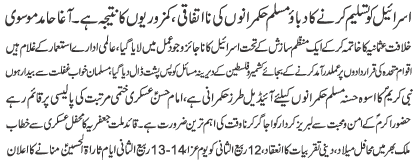 اسرائیل کو تسلیم کرنے کا دباؤ مسلم حکمرانوں کی نااتفاقی، کمزوریوں کا نتیجہ ہے۔ آغا حامد موسوی
خلافت عثمانیہ کا خاتمہ کرکے ایک منظم سازش کے تحت اسرائیل کا ناجائز وجود عمل میں لایا گیا، عالمی ادارے استعمار کے غلام ہیں
اقوام متحدہ کی قراردادوں پر عملدرآمد کرنے کے بجائے کشمیر و فلسطین کے دیرینہ مسائل کو پس پشت ڈال دیا گیا، مسلمان خواب غفلت سے بیدار ہوں
نبی کریمؐ کا اسوہ حسنہ مسلم حکمرانوں کیلئے آئیڈیل طرز حکمرانی ہے، امام حسن عسکری ختمی مرتبت کی پالیسی پر قائم رہے
حضور اکرم کے امن و محبت سے لبریز کردار کو اجاگر کرنا وقت کی اہم ترین ضرورت ہے۔ قائد ملت جعفریہ کا محفل عسکری سے خطاب
ملک بھر میں محافل میلاد، دینی تقریبات کا انعقاد، 12 ربیع الثانی کو یوم عزا، 13-14 ربیع الثانی ایام تارۃ الحسینؑ منانے کا اعلان